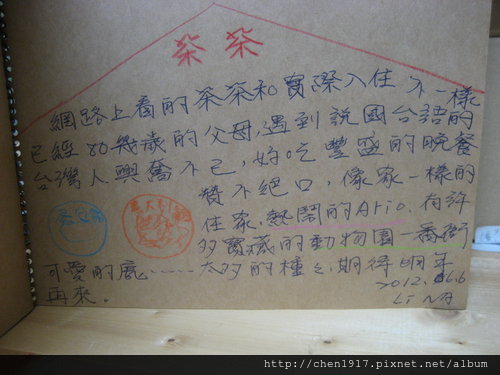 茶茶
網路上看的茶茶和實際入住不一樣
已經80幾歲的父母,遇到說國台語的
台灣人興奮不已,好吃豐盛的晚餐
讚不絕口,像家一樣的
住家,熱鬧的Ario.有許
多寶藏的動物園一番街
可愛的鹿......太多的種種,期待明年
再來。
2012.06.6
Li NA
http://chen1917.pixnet.net/album